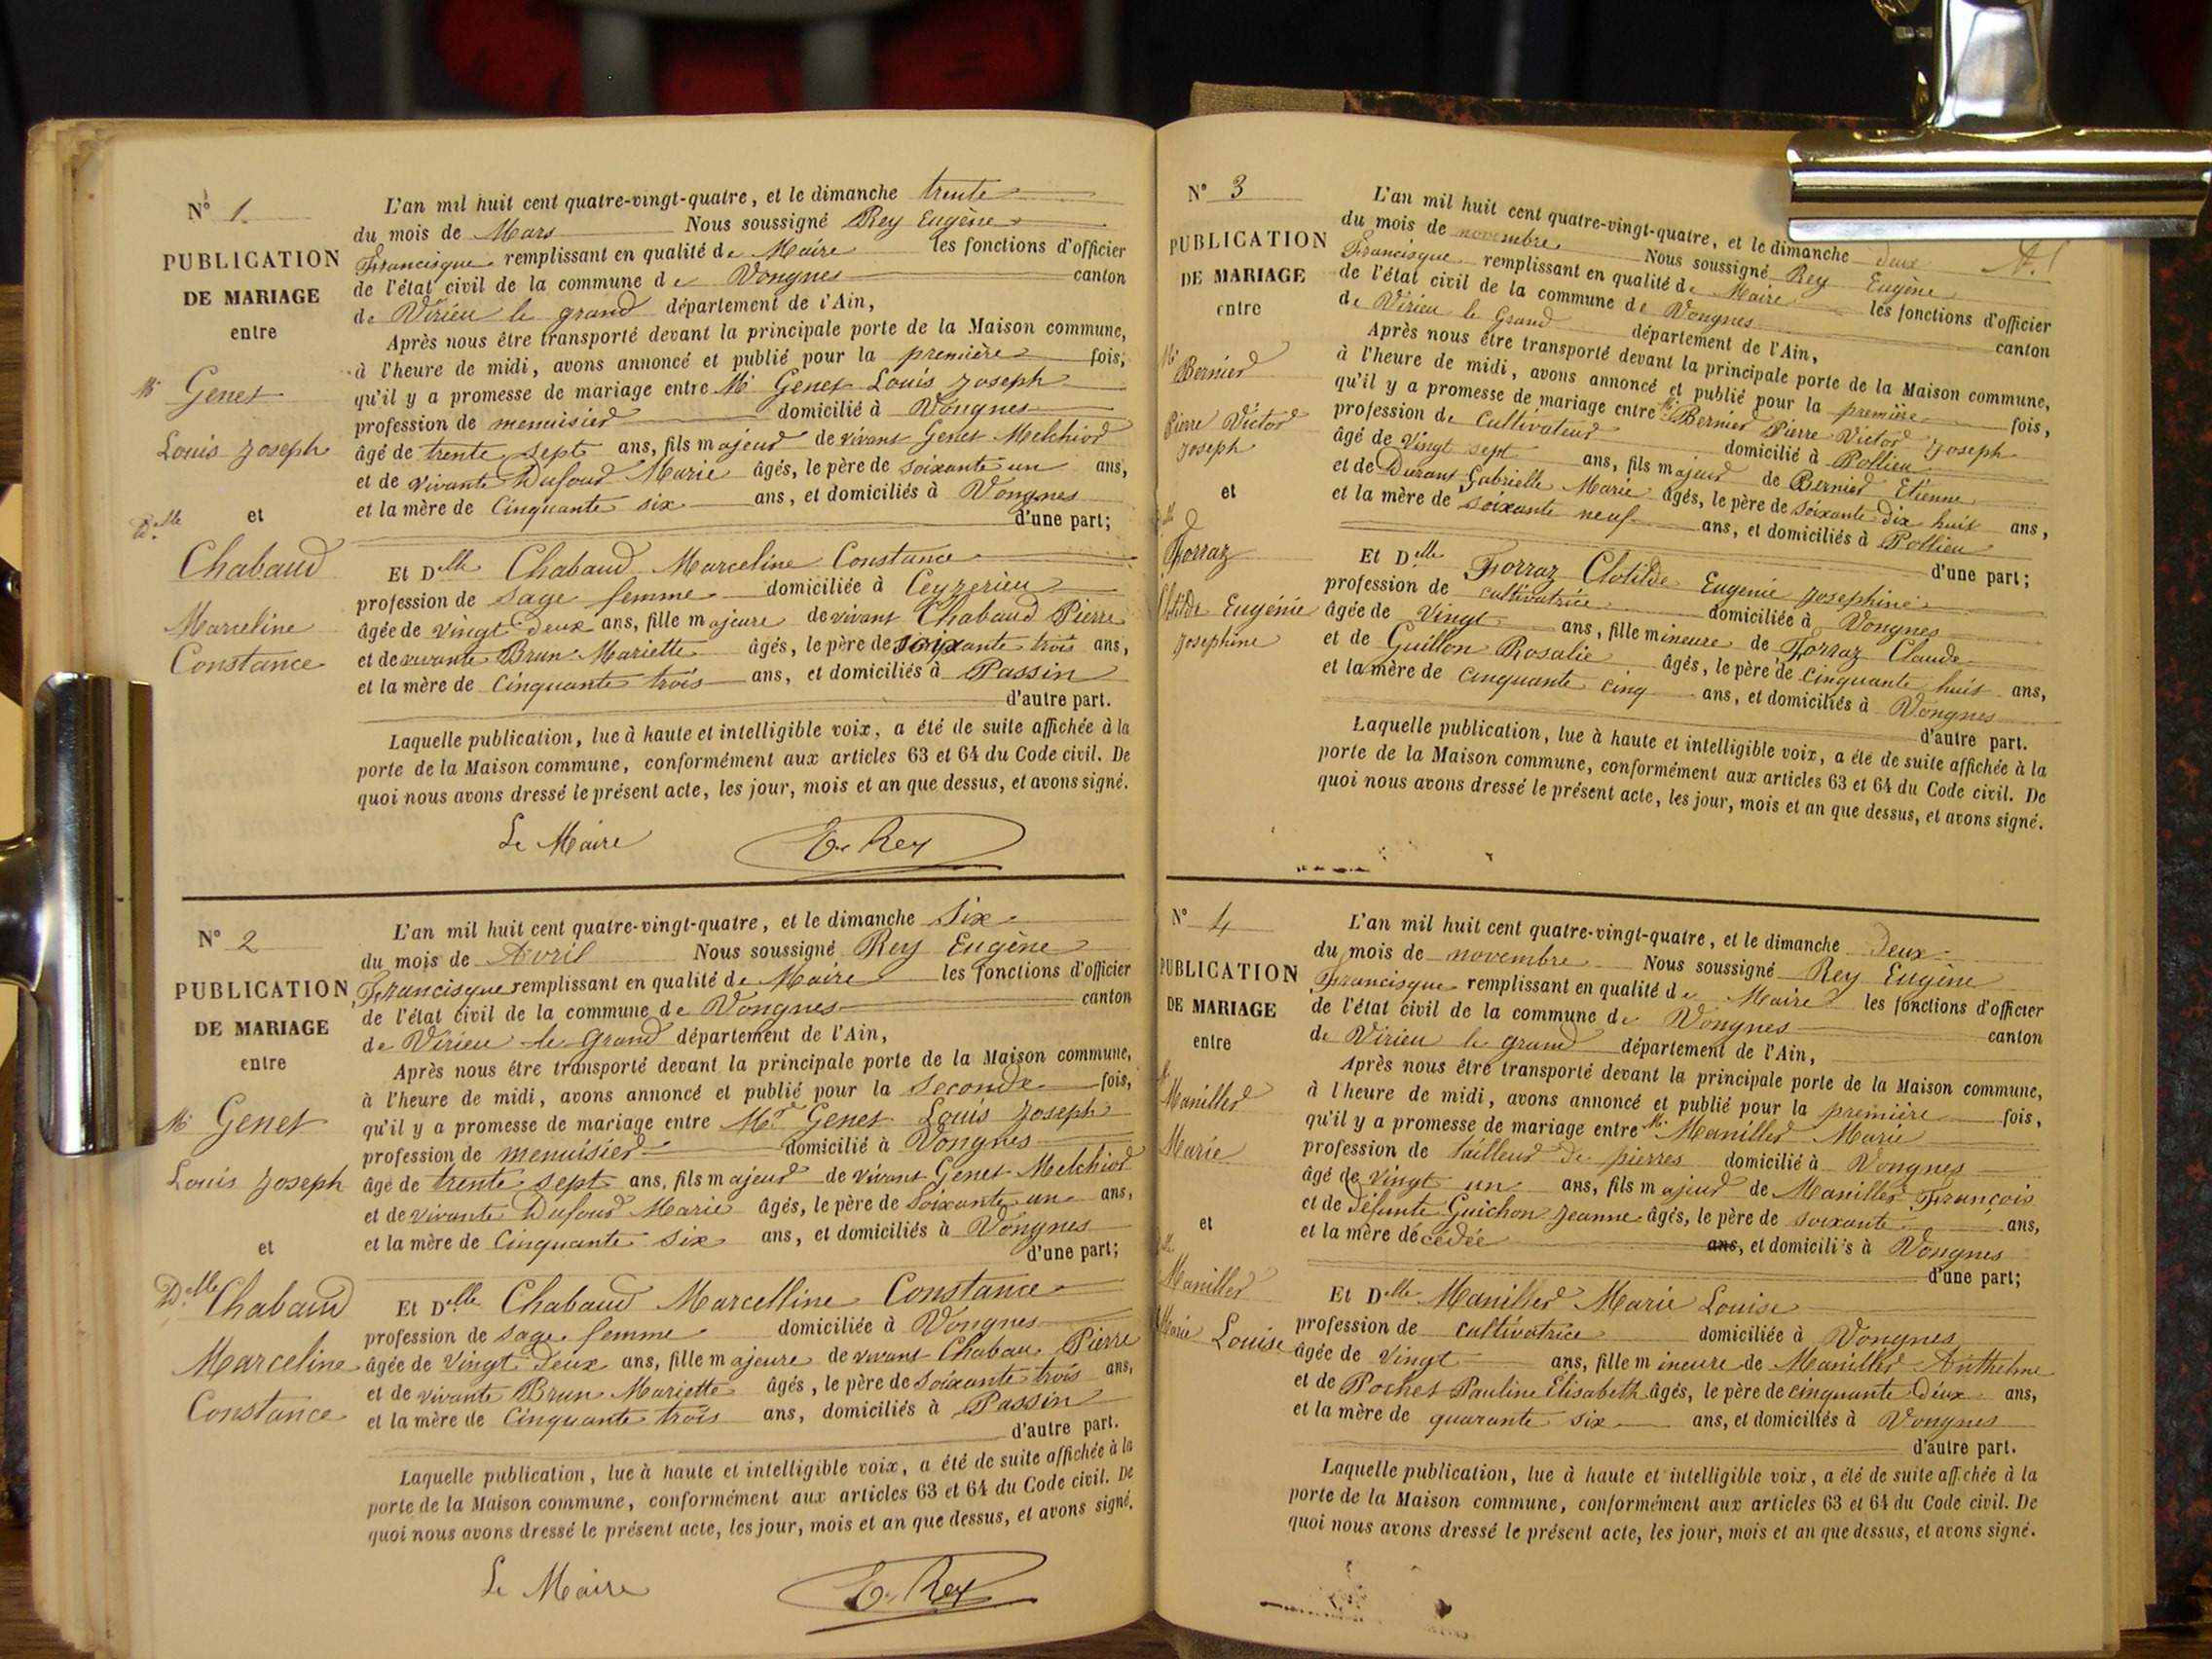 N° 1.
PUBLICATION
DE MARIAGE
entre
Mr Genet
Louis Joseph
et
Delle
Chabaud
Marceline
Constance
L'an mil huit cent quatre-vingt-quatre, et le dimanche trente
du mois de Mars Nous soussigné Rey Eugène
Francisque remplissant en qualité de Maire les fonctions d'officier
de l'état civil de la commune de Vongnes canton
de Virieu le grand département de l'Ain,
Après nous être transporté devant la principale porte de la Maison commune,
à l'heure de midi, avons annoncé et publié pour la première fois,
qu'il y a promesse de mariage entre Mr Genet Louis Joseph
profession de menuisier domicilié à Vongnes
âgé de trente sept ans, fils majeur de vivant Genet Melchior
et de vivante Dufour Marie âgés, le père de soixante un ans,
et la mère de Cinquante six ans, et domiciliés à Vongnes
d'une part;
Et Delle Chabaud Marceline Constance
profession de sage femme domiciliée à Ceyzerieu
âgée de vingt deux ans, fille majeure de vivant Chabaud Pierre
et de vivante Brun Mariette âgés, le père de soixante trois ans,
et la mère de Cinquante trois ans, et domiciliés à Passin
d'autre part.
Laquelle publication, lue à haute et intelligible voix, a été de suite affichée à la
porte de la Maison commune, conformément aux articles 63 et 64 du Code civil. De
quoi nous avons dressé le présent acte, les jour, mois et an que dessus, et avons signé.
Le Maire E. Rey
N° 2
PUBLICATION
DE MARIAGE
entre
Mr Genet
Louis Joseph
et
Delle Chabaud
Marceline
Constance
L'an mil huit cent quatre-vingt-quatre, et le dimanche Six
du mois de Avril Nous soussigné Rey Eugène
Francisque remplissant en qualité de Maire les fonctions d'officier
de l'état civil de la commune de Vongnes canton
de Virieu le Grand département de l'Ain,
Après nous être transporté devant la principale porte de la Maison commune,
à l'heure de midi, avons annoncé et publié pour la seconde fois,
qu'il y a promesse de mariage entre Mr Genet Louis Joseph
profession de menuisier domicilié à Vongnes
âgé de trente sept ans, fils majeur de vivant Genet Melchior
et de vivante Dufour Marie âgés, le père de Soixante un ans,
et la mère de Cinquante Six ans, et domiciliés à Vongnes
d'une part;
Et Delle Chabaud Marcelline Constance
profession de sage femme domiciliée à Vongnes
âgée de Vingt Deux ans, fille majeure de vivant Chabau Pierre
et de vivante Brun Mariette âgés, le père de Soixante trois ans,
et la mère de Cinquante trois ans, domiciliés à Passin
d'autre part.
Laquelle publication, lue à haute et intelligible voix, a été de suite affichée à la
porte de la Maison commune, conformément aux articles 63 et 64 du Code civil. De
quoi nous avons dressé le présent acte, les jour, mois et an que dessus, et avons signé.
Le Maire E. Rey
N° 3
PUBLICATION
DE MARIAGE
entre
Mr
Bernier
Pierre Victor
Joseph
et
Forraz
Clotilde Eugénie
Josephine
L'an mil huit cent quatre-vingt-quatre, et le dimanche deux
du mois de novembre Nous soussigné Rey Eugène
Francisque remplissant en qualité de Maire les fonctions d'officier
de l'état civil de la commune de Vongnes canton
de Virieu le Grand département de l'Ain,
Après nous être transporté devant la principale porte de la Maison commune,
à l'heure de midi, avons annoncé et publié pour la première fois,
qu'il y a promesse de mariage entre Mr Bernier Pierre Victor Joseph
profession de Cultivateur domicilié à Pollieu
âgé de Vingt sept ans, fils majeur de Bernier Etienne
et de Durant Gabrielle Marie âgés, le père de soixante dix huit ans,
et la mère de soixante neuf ans, et domiciliés à Pollieu
d'une part;
Et Delle Forraz Clotilde Eugenie Josephine
profession de cultivatrice domiciliée à Vongnes
âgée de Vingt ans, fille mineure de Forraz Claude
et de Guillon Rosalie âgés, le père de Cinquante huit ans,
et la mère de cinquante cinq ans, et domiciliés à Vongnes
d'autre part.
Laquelle publication, lue à haute et intelligible voix, a été de suite affichée à la
porte de la Maison commune, conformément aux articles 63 et 64 du Code civil. De
quoi nous avons dressé le présent acte, les jour, mois et an que dessus, et avons signé.
N° 4
PUBLICATION
DE MARIAGE
entre
Manillier
Marie
et
Manillier
Marie Louise
L'an mil huit cent quatre-vingt-quatre, et le dimanche Deux
du mois de novembre Nous soussigné Rey Eugène
Francisque remplissant en qualité de Maire les fonctions d'officier
de l'état civil de la commune de Vongnes canton
de Virieu le grand département de l'Ain,
Après nous être transporté devant la principale porte de la Maison commune,
à l'heure de midi, avons annoncé et publié pour la première fois,
qu'il y a promesse de mariage entre Mr Manillier Marie
profession de tailleur de pierres domicilié à Vongnes
âgé de Vingt un ans, fils majeur de Manillier François
et de défunte Guichon Jeanne âgés, le père de soixante ans,
et la mère décédée ans, et domiciliés à Vongnes
d'une part;
Et Delle Manillier Marie Louise
profession de cultivatrice domiciliée à Vongnes
âgée de Vingt ans, fille mineure de Manillier Anthelme
et de Pochet Pauline Elisabeth âgés, le père de cinquante Deux ans,
et la mère de quarante six ans, et domiciliés à Vongnes
d'autre part.
Laquelle publication, lue à haute et intelligible voix, a été de suite affichée à la
porte de la Maison commune, conformément aux articles 63 et 64 du Code civil. De
quoi nous avons dressé le présent acte, les jour, mois et an que dessus, et avons signé.